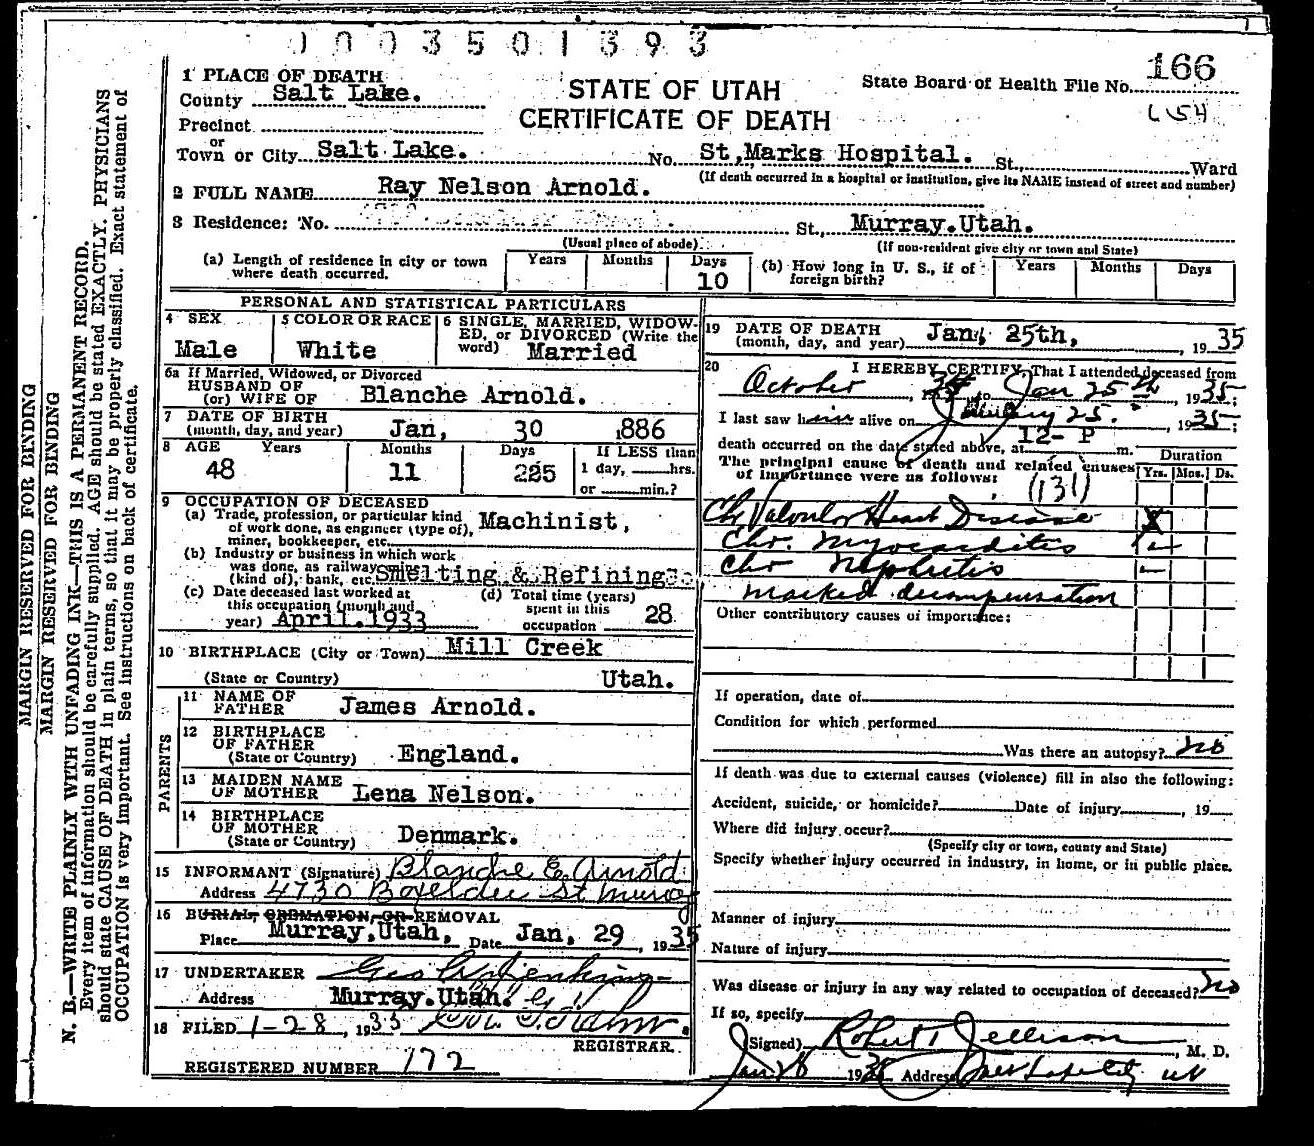 0003501393
166
State Board of Health File No.
STATE OF UTAH
CERTIFICATE OF DEATH
1 PLACE OF DEATH
County Salt Lake.
Precinct
or
Town or City Salt Lake. No. St, Marks Hospital. St. Ward
(If death occurred in a hospital or institution, give its NAME instead of street and number)
2 FULL NAME Ray Nelson Arnold.
3 Residence: No. St., Murray.Utah.
(Usual place of abode) (If non-resident give city or town and State)
(a) Length of residence in city or town where death occurred. Years Months Days 10
(b) How long in U. S., if of foreign birth? Years Months Days
PERSONAL AND STATISTICAL PARTICULARS
4 SEX Male
5 COLOR OR RACE White
6 SINGLE, MARRIED, WIDOW-
ED, or DIVORCED (Write the
word) Married
6a If Married, Widowed, or Divorced
HUSBAND OF
(or) WIFE OF Blanche Arnold.
7 DATE OF BIRTH
(month, day, and year) Jan, 30 1886
8 AGE Years Months Days If LESS than
48 11 225 1 day, hrs.
or min.?
9 OCCUPATION OF DECEASED
(a) Trade, profession, or particular kind
of work done, as engineer (type of), Machinist,
miner, bookkeeper, etc.
(b) Industry or business in which work
was done, as railway
(kind of), bank, etc. Smelting & Refining
(c) Date deceased last worked at
this occupation (month and
year) April.1933
(d) Total time (years)
spent in this
occupation 28
10 BIRTHPLACE (City or Town) Mill Creek
(State or Country) Utah.
PARENTS
11 NAME OF
FATHER James Arnold.
12 BIRTHPLACE
OF FATHER
(State or Country) England.
13 MAIDEN NAME
OF MOTHER Lena Nelson.
14 BIRTHPLACE
OF MOTHER
(State or Country) Denmark.
15 INFORMANT (Signature) Blanche E. Arnold
Address 4730 Boxelder St Murray
16 BURIAL, CREMATION, OR REMOVAL
Place Murray,Utah, Date Jan, 29, 1935
17 UNDERTAKER Geo W Jenkins
Address Murray.Utah.
18 FILED 1-28, 1935
REGISTRAR.
REGISTERED NUMBER 172
19 DATE OF DEATH
(month, day, and year) Jan, 25th, 1935
20 I HEREBY CERTIFY, That I attended deceased from
October, 1934, to Jan 25th, 1935;
I last saw him alive on January 25, 1935;
death occurred on the date stated above, at 12- P m.
The principal cause of death and related causes
of importance were as follows:
Duration
Yrs. Mos. Ds.
(131)
Ch Valvular Heart Disease X
Chr. Myocarditis
Chr Nephritis
marked decompensation
Other contributory causes of importance:
If operation, date of
Condition for which performed
Was there an autopsy? no
If death was due to external causes (violence) fill in also the following:
Accident, suicide, or homicide? Date of injury, 19
Where did injury occur?
(Specify city or town, county and State)
Specify whether injury occurred in industry, in home, or in public place.
Manner of injury
Nature of injury
Was disease or injury in any way related to occupation of deceased? no
If so, specify
(Signed) Robert T Jellison, M. D.
Jan 28 1935 Address Salt Lake City Ut
MARGIN RESERVED FOR BINDING
MARGIN RESERVED FOR BINDING
N. B.—WRITE PLAINLY WITH UNFADING INK—THIS IS A PERMANENT RECORD.
Every item of information should be carefully supplied. AGE should be stated EXACTLY. PHYSICIANS
should state CAUSE OF DEATH in plain terms, so that it may be properly classified. Exact statement of
OCCUPATION is very important. See instructions on back of certificate.